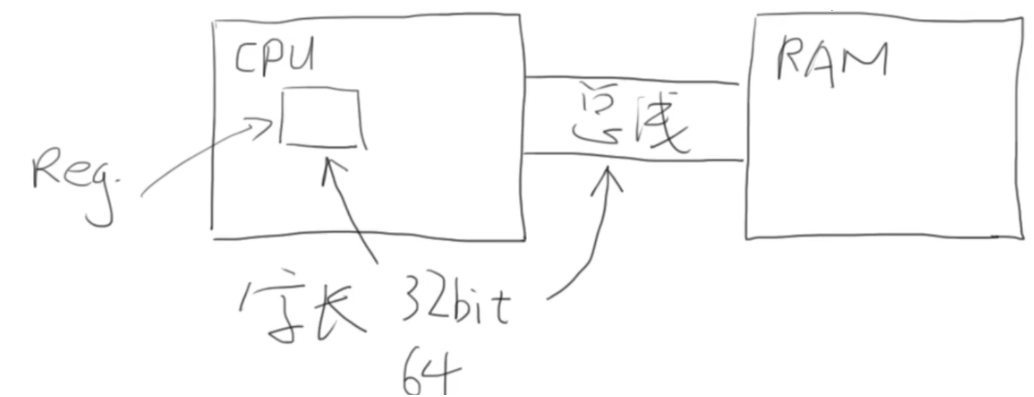 CPU
RAM
总线
Reg.
字长 32bit
64